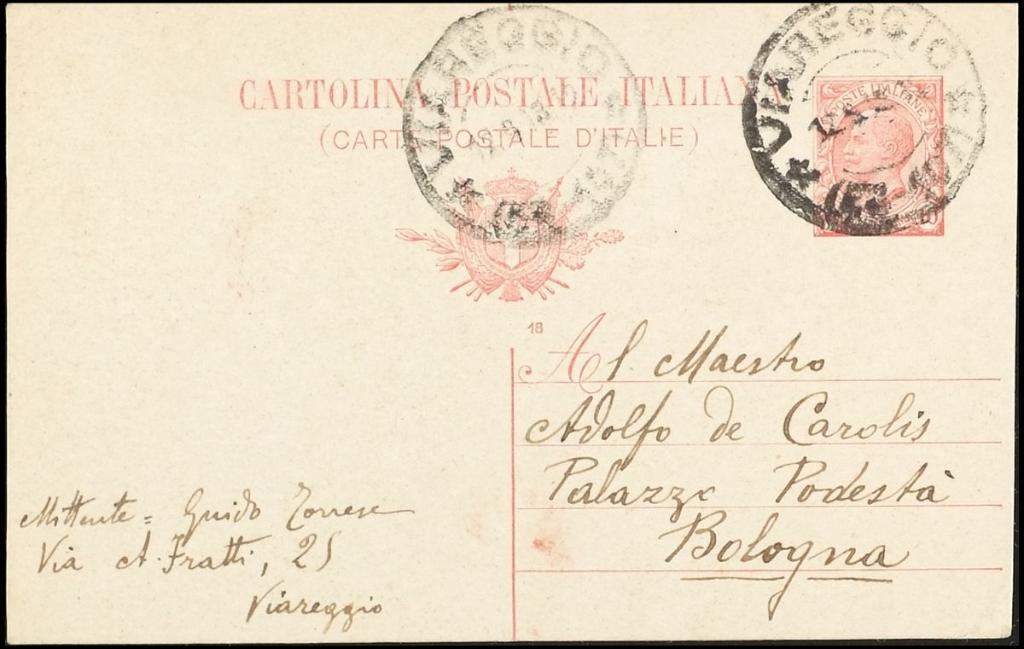 CARTOLINA POSTALE ITALIANA
(CARTE POSTALE D'ITALIE)
VIAREGGIO
VIAREGGIO
POSTE ITALIANE
18
Al Maestro
Adolfo de Carolis
Palazzo Podestà
Bologna
Mittente = Guido
Via A. Fratti, 25
Viareggio